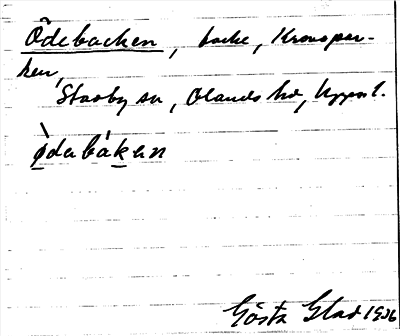 Ödebacken, backe, Kronopar-
ken,
Stavby sn, Olands hd, Uppsl.
ödebákan
Gösta Glad 1936